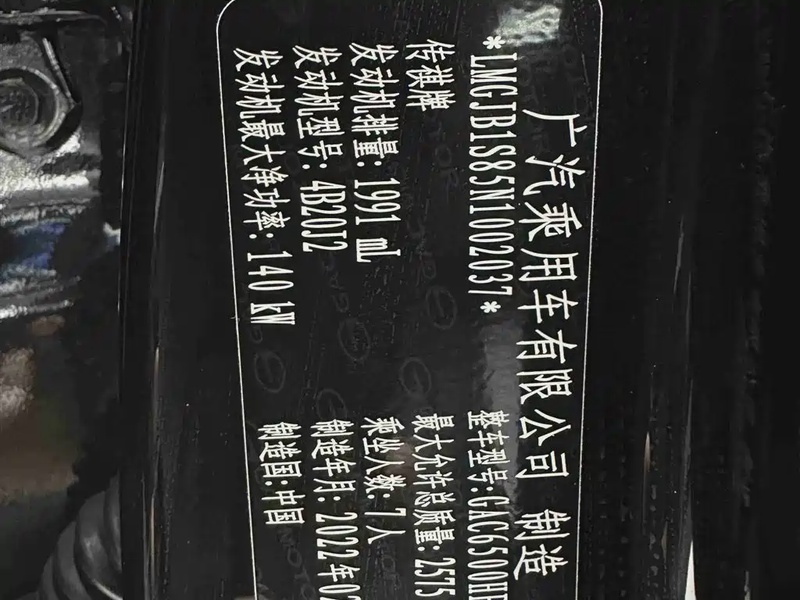 广汽乘用车有限公司 制造
*LMGJB1S85N1002037*
整车型号:GAC6500HE
传祺牌
最大允许总质量:2575
发动机排量:1991 mL
乘坐人数:7人
发动机型号:4B20J2
制造年月:2022年02
发动机最大净功率:140 kW
制造国:中国